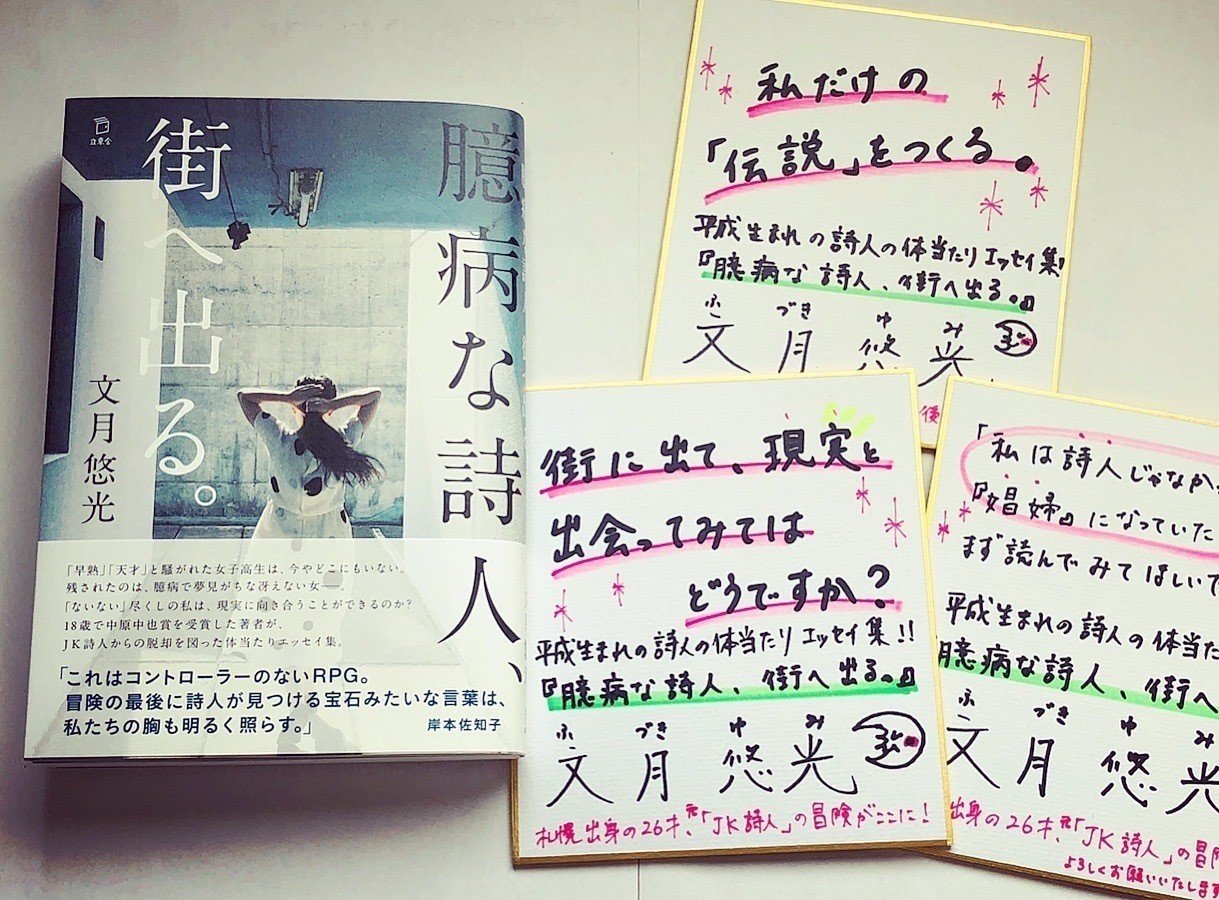 臆病な詩人、
街へ出る。
文月悠光
立東舎
「早熟」「天才」と騒がれた女子高生は、今やどこにもいない。
残されたのは、臆病で夢見がちな冴えない女――。
「ないない」尽くしの私は、現実に向き合うことができるのか?
18歳で中原中也賞を受賞した著者が、
JK詩人からの脱却を図った体当たりエッセイ集。
「これはコントローラーのないRPG。
冒険の最後に詩人が見つける宝石みたいな言葉は、
私たちの胸も明るく照らす。」
岸本佐知子
私だけの
「伝説」をつくる。
平成生まれの詩人の体当たりエッセイ集!
『臆病な詩人、街へ出る。』
ふ づき ゆ み
文月悠光
街に出て、現実と
出会ってみては
どうですか?
平成生まれの詩人の体当たりエッセイ集!!
『臆病な詩人、街へ出る。』
ふ づき ゆ み
文月悠光
札幌出身の26才、元「JK詩人」の冒険がここに!
「私は詩人じゃなか
『娼婦』になっていた
まず読んでみてほしいで
平成生まれの詩人の体当た
臆病な詩人、街へ
ふ づき ゆ み
文月悠光
出身の26才、元「JK詩人」の冒険
よろしくお願いいたします